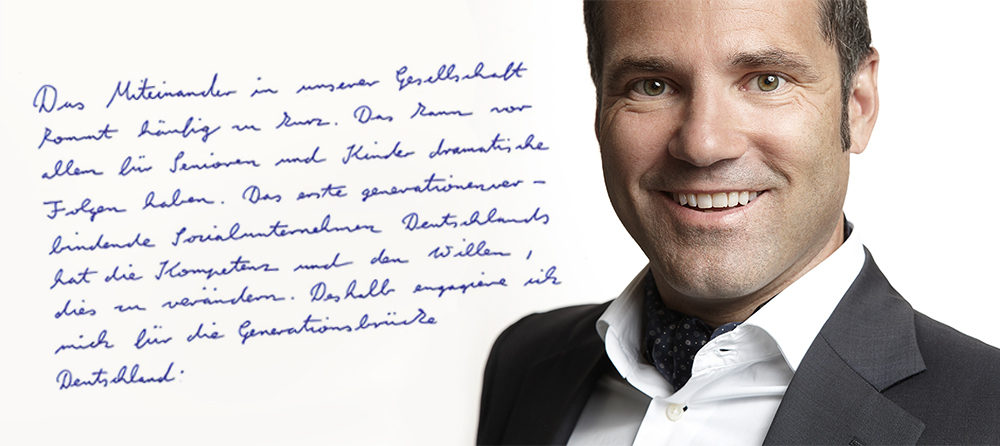 Das Miteinander in unserer Gesellschaft
kommt häufig zu kurz. Das kann vor
allem für Senioren und Kinder dramatische
Folgen haben. Das erste generationenver-
bindende Sozialunternehmen Deutschlands
hat die Kompetenz und den Willen,
dies zu verändern. Deshalb engagiere ich
mich für die Generationsbrücke
Deutschland.